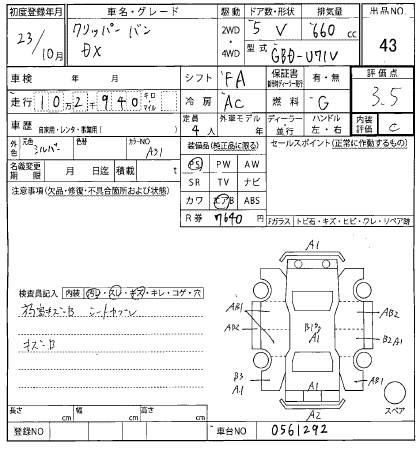 初度登録年月 車名・グレード 駆動 ドア数・形状 排気量 出品NO.
23/10月 クリッパー バン DX 2WD・4WD 5 V 660 cc 43
型式 GBD-U71V
車検 年 月 シフト FA 保証書 有・無 評価点
走行 10万2千940 キロ マイル 冷房 AC 燃料 G 3.5
車歴 自家用・レンタ・事業用( ) 定員 4人 外車モデル 年 ディーラー・並行 ハンドル 左・右 内装評価 C
外色 元色 シルバー 色替 カラーNO A31 装備品(純正品に限る) セールスポイント(正常に作動するもの)
名義変更期限 月 日迄 積載 t PS PW AW
SR TV ナビ
注意事項(欠品・修復・不具合箇所および状態) カワ エアB ABS
R券 7640円 Fガラス トビ石・キズ・ヒビ・ワレ・リペア跡
検査員記入 内装 汚レ・スレ・キズ・キレ・コゲ・穴
キズ-B
A1
AB1 AB1
AB2 B1 AB2
B2 A1
B3 A1 A1 AB1
A2
スペア
長さ cm 幅 cm 高さ cm
登録NO 車台NO 0561292